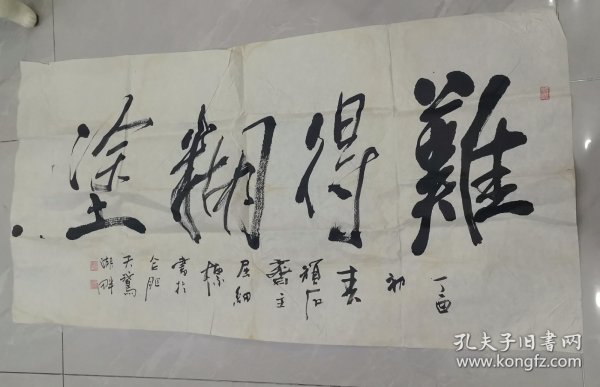 難得糊塗
丁酉
初
春
頑石
齋主
屈細
據
書於
合肥
天鵝
湖畔
孔夫子旧书网
www.kongfz.com